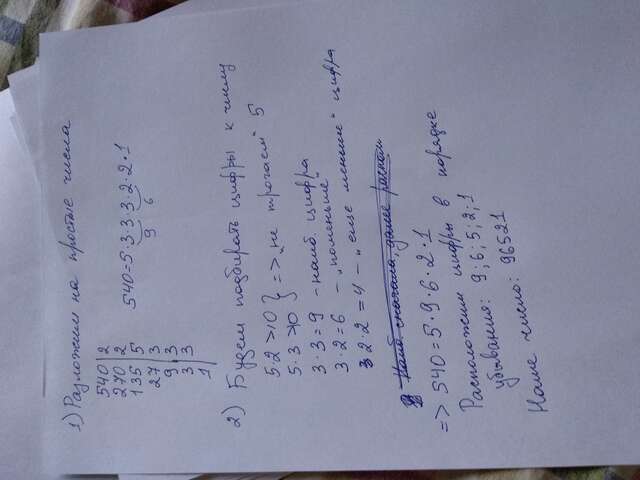 1) Разложим на простые числа
540|2
270|2
135|5
27|3
9|3
3|3
1
540=5·3·3·3·2·2·1
9 6
2) Будем подбирать цифры к числу
5·2≥10 } => „не трогаем“ 5
5·3>10
3·3=9 - наиб. цифра
3·2=6 - „поменьше“
2·2=4 - „еще меньше“ цифра
=> 540=5·9·6·2·1
Расположим цифры в порядке
убывания: 9;6;5;2;1
Наше число: 96521